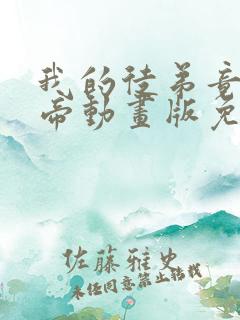 我的徒弟竟
帝動畫版免
佐藤雅史
未任同意禁止转载